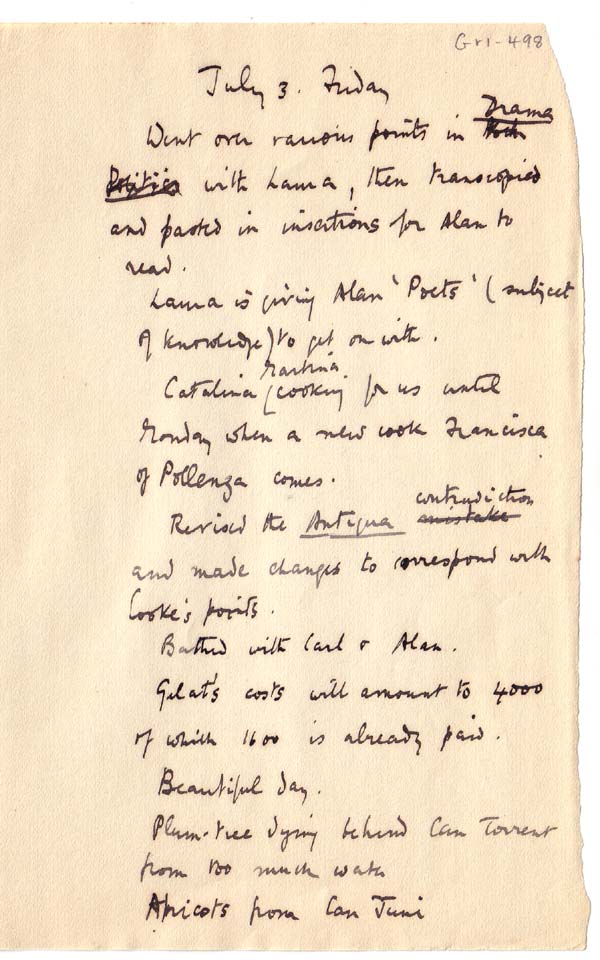 Gr1-498
July 3. Friday
Drama
Went over various points in
Politics with Laura, then transcopied
and pasted in insertions for Alan to
read.
Laura is giving Alan 'Poets' (subject
of knowledge) to get on with.
Martina
Catalina (cooking for us until
Monday when a new cook Francisca
of Pollenza comes.
contradiction
Revised the Antigua mistake
and made changes to correspond with
Cooke's points.
Bathed with Carl & Alan.
Gelat's costs will amount to 4000
of which 1600 is already paid.
Beautiful day.
Plum-tree dying behind Can Torrent
from too much water
Apricots from Can Juni